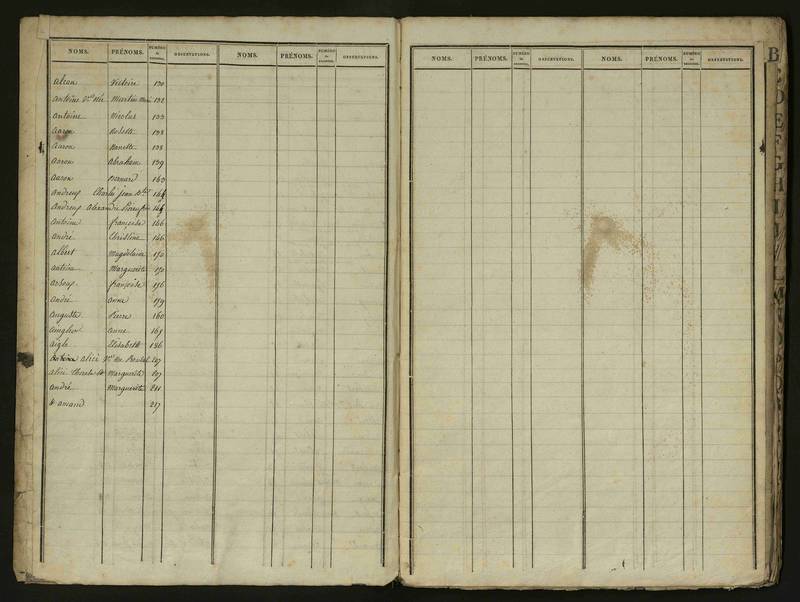 NOMS. PRÉNOMS. NUMÉRO OBSERVATIONS. NOMS. PRÉNOMS. NUMÉRO OBSERVATIONS.
Victoire 130
antoine Martin 132
antoine Nicolas 133
Aaron Babette 138
Aaron Nanette 138
Aaron abraham 139
Aaron Bernard 143
andreux Charles jean Bte 144
andreux alexandre 144
antoine françoise 146
andré Christine 146
albert Magdelaine 150
antoine Marguerite 150
françoise 156
andré anne 159
auguste Pierre 160
anne 169
aigle Elisabeth 186
alice 207
alice Marguerite 207
andré Marguerite 211
St amand 217
NOMS. PRÉNOMS. NUMÉRO OBSERVATIONS. NOMS. PRÉNOMS. NUMÉRO OBSERVATIONS.
B
C
D
E
F
G
H